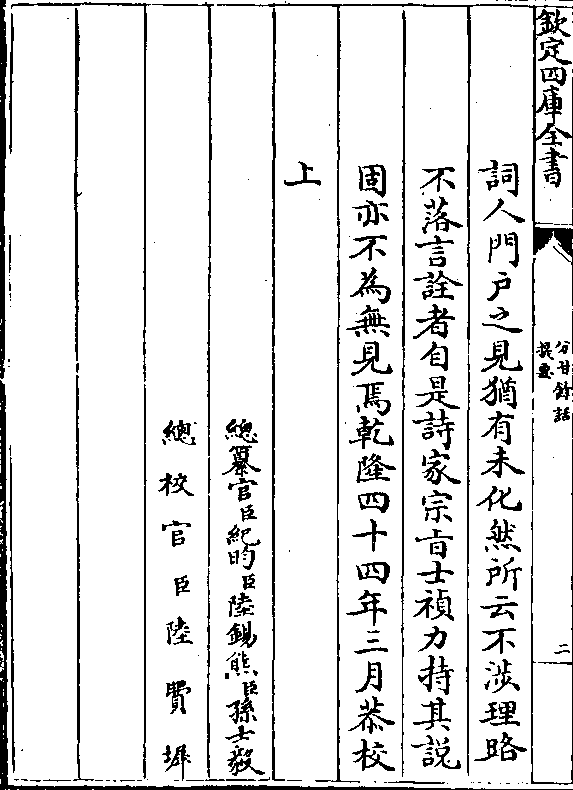 欽定四庫全書
分甘餘話
提要
二
詞人門户之見猶有未化然所云不渉理路
不落言詮者自是詩家宗旨士禎力持其説
固亦不為無見焉乾隆四十四年三月恭校
上
總纂官臣紀昀臣陸錫熊臣孫士毅
總校官臣陸費墀